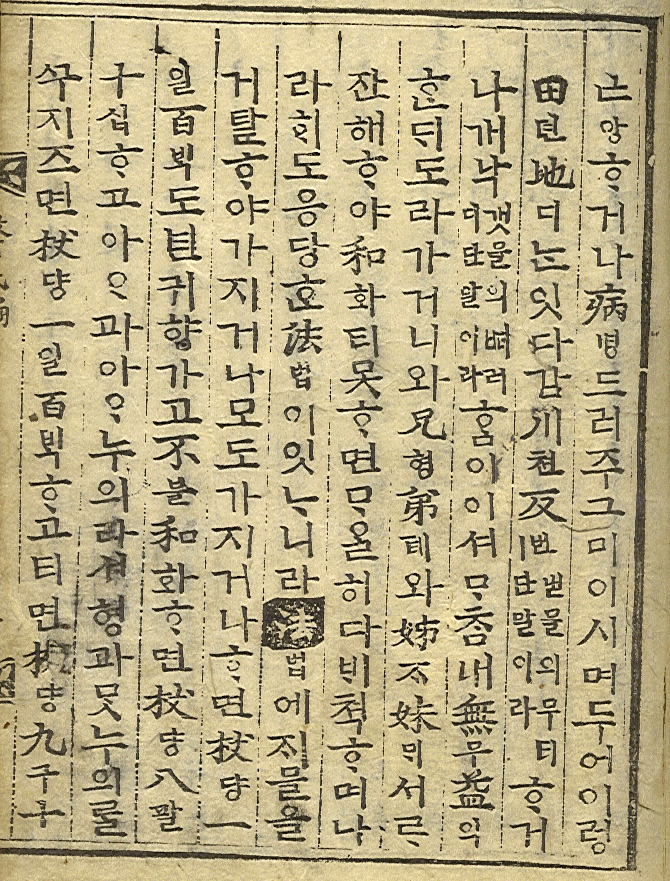 앙ᄒᆞ거나病병드러주그미이시며두어이렁
田뎐地디ᄂᆞᆫ잇다감川쳔反번믈의무티ㅣ단말이라ᄒᆞ거
나개낙갯믈의ᄲᅥ러디단말이라홈이이셔ᄆᆞᄎᆞᆷ내無무益익
ᄒᆞᆫᄃᆡ도라가거니와兄형弟뎨와姊ᄌᆞ妹ᄆᆡ서ᄅᆞ
잔해ᄒᆞ야和화티못ᄒᆞ면ᄆᆞᄋᆞᆯ히다비척ᄒᆞ며나
라ᄒᆡ도응당ᄒᆞᆫ法법이잇ᄂᆞ니라法법에ᄌᆡ믈을
거탈ᄒᆞ야가지거나모도가지거나ᄒᆞ면杖댱一
일百ᄇᆡᆨ도귀향가고不블和화ᄒᆞ면杖댱八팔
구십ᄒᆞ고아ᄋᆞ과아ᄋᆞ누의라셔형과ᄆᆞᆺ누의ᄅᆞᆯ
ᄭᅮ지즈면杖댱一일百ᄇᆡᆨᄒᆞ고티면杖댱九구十